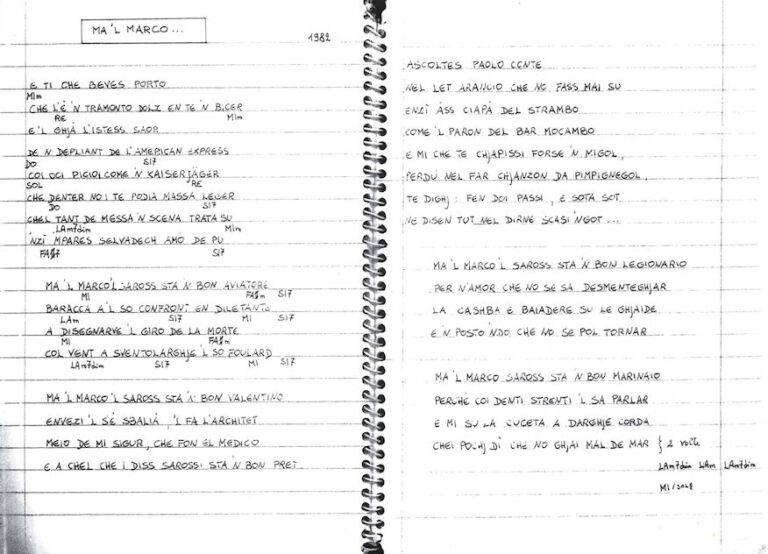 MA 'L MARCO...
1982
E TI CHE BEVES PORTO
MIm
CHE L'È 'N TRAMONTO DOLZ EN TE 'N BICER
RE MIm
E 'L GHJÀ L'ISTESS SAOR
DE 'N DEPLIANT DE L'AMERICAN EXPRESS
DO SI7
COI OCI PICIOI COME 'N KAISERJÄGER
SOL RE
CHE DENTER NO I TE PODIA MASSA LEGER
DO SI7
CHEL TANT DE MESSA 'N SCENA TRATA SU
LAm7dim MIm
'NZÌ MPARES SELVADECH AMO DE PU
FA#7 SI7
MA 'L MARCO 'L SAROSS STÀ 'N BON AVIATORE
MI FA#m SI7
BARACCA A 'L SO CONFRONT EN DILETANTE
LAm SI7 MI SI7
A DISEGNARVE 'L GIRO DE LA MORTE
MI FA#m
COL VENT A SVENTOLARGHJE 'L SO FOULARD
LAm7dim SI7 MI SI7
MA 'L MARCO 'L SAROSS STÀ 'N BON VALENTINO
ENVEZI 'L SÈ SBALIÀ, 'L FA L'ARCHITET
MEIO DE MI SIGUR, CHE FON EL MEDICO
E A CHEL CHE I DISS SAROSSI STÀ 'N BON PRET
ASCOLTES PAOLO CONTE
NEL LET ARANCIO CHE NO FASS MAI SU
ENZÌ ÀSS CIAPÀ DEL STRAMBO
COME 'L PARON DEL BAR MOCAMBO
E MI CHE TE CHJAPISSI FORSE 'N MIGOL,
PERDÙ NEL FAR CHJANZON DA PIMPIGNEGOL,
TE DIGHJ: FEN DOI PASSI, E SOTA SOT
NE DISEN TUT NEL DIRNE SCASI NGOT...
MA 'L MARCO 'L SAROSS STÀ 'N BON LEGIONARIO
PER 'N AMOR CHE NO SE SÀ DESMENTEGHJAR
LA CASHBA E BAIADERE SU LE GHJAIDE
E 'N POSTO 'NDO CHE NO SE POL TORNAR
MA 'L MARCO SAROSS STÀ 'N BON MARINAIO
PERCHÉ COI DENTI STRENTI 'L SA PARLAR
E MI SU LA CUCETA A DARGHJE CORDA
CHEI POCHJ DÌ CHE NO GHJAI MAL DE MAR } 2 volte
LAm7dim LAm LAm7dim